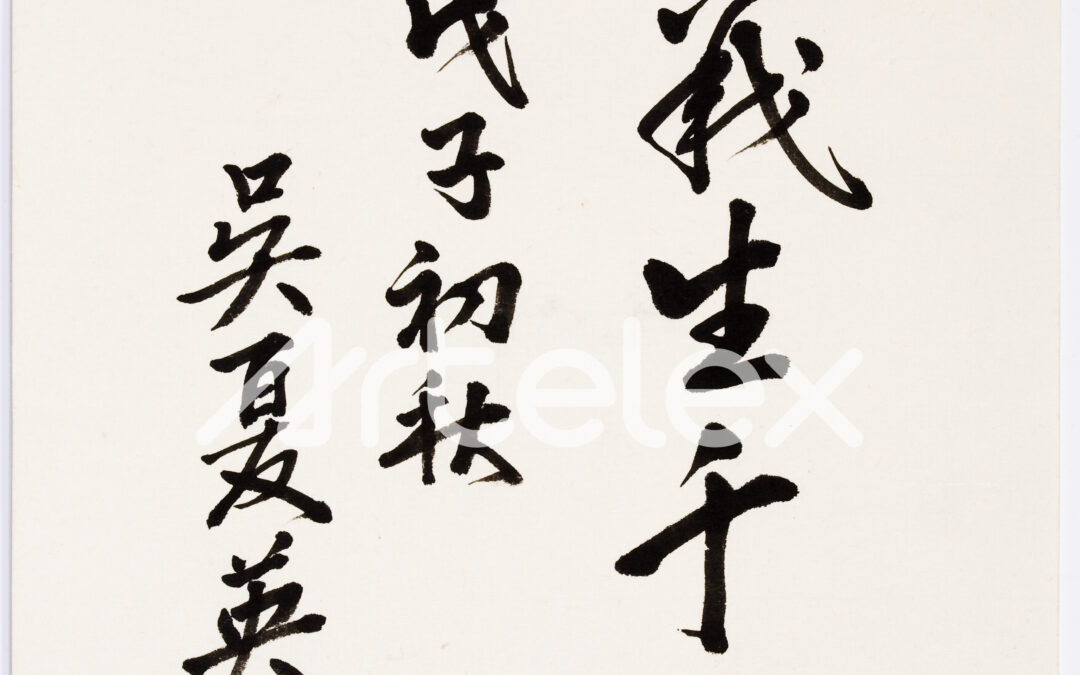 義生千
戊子初秋
吳夏英
Artelex